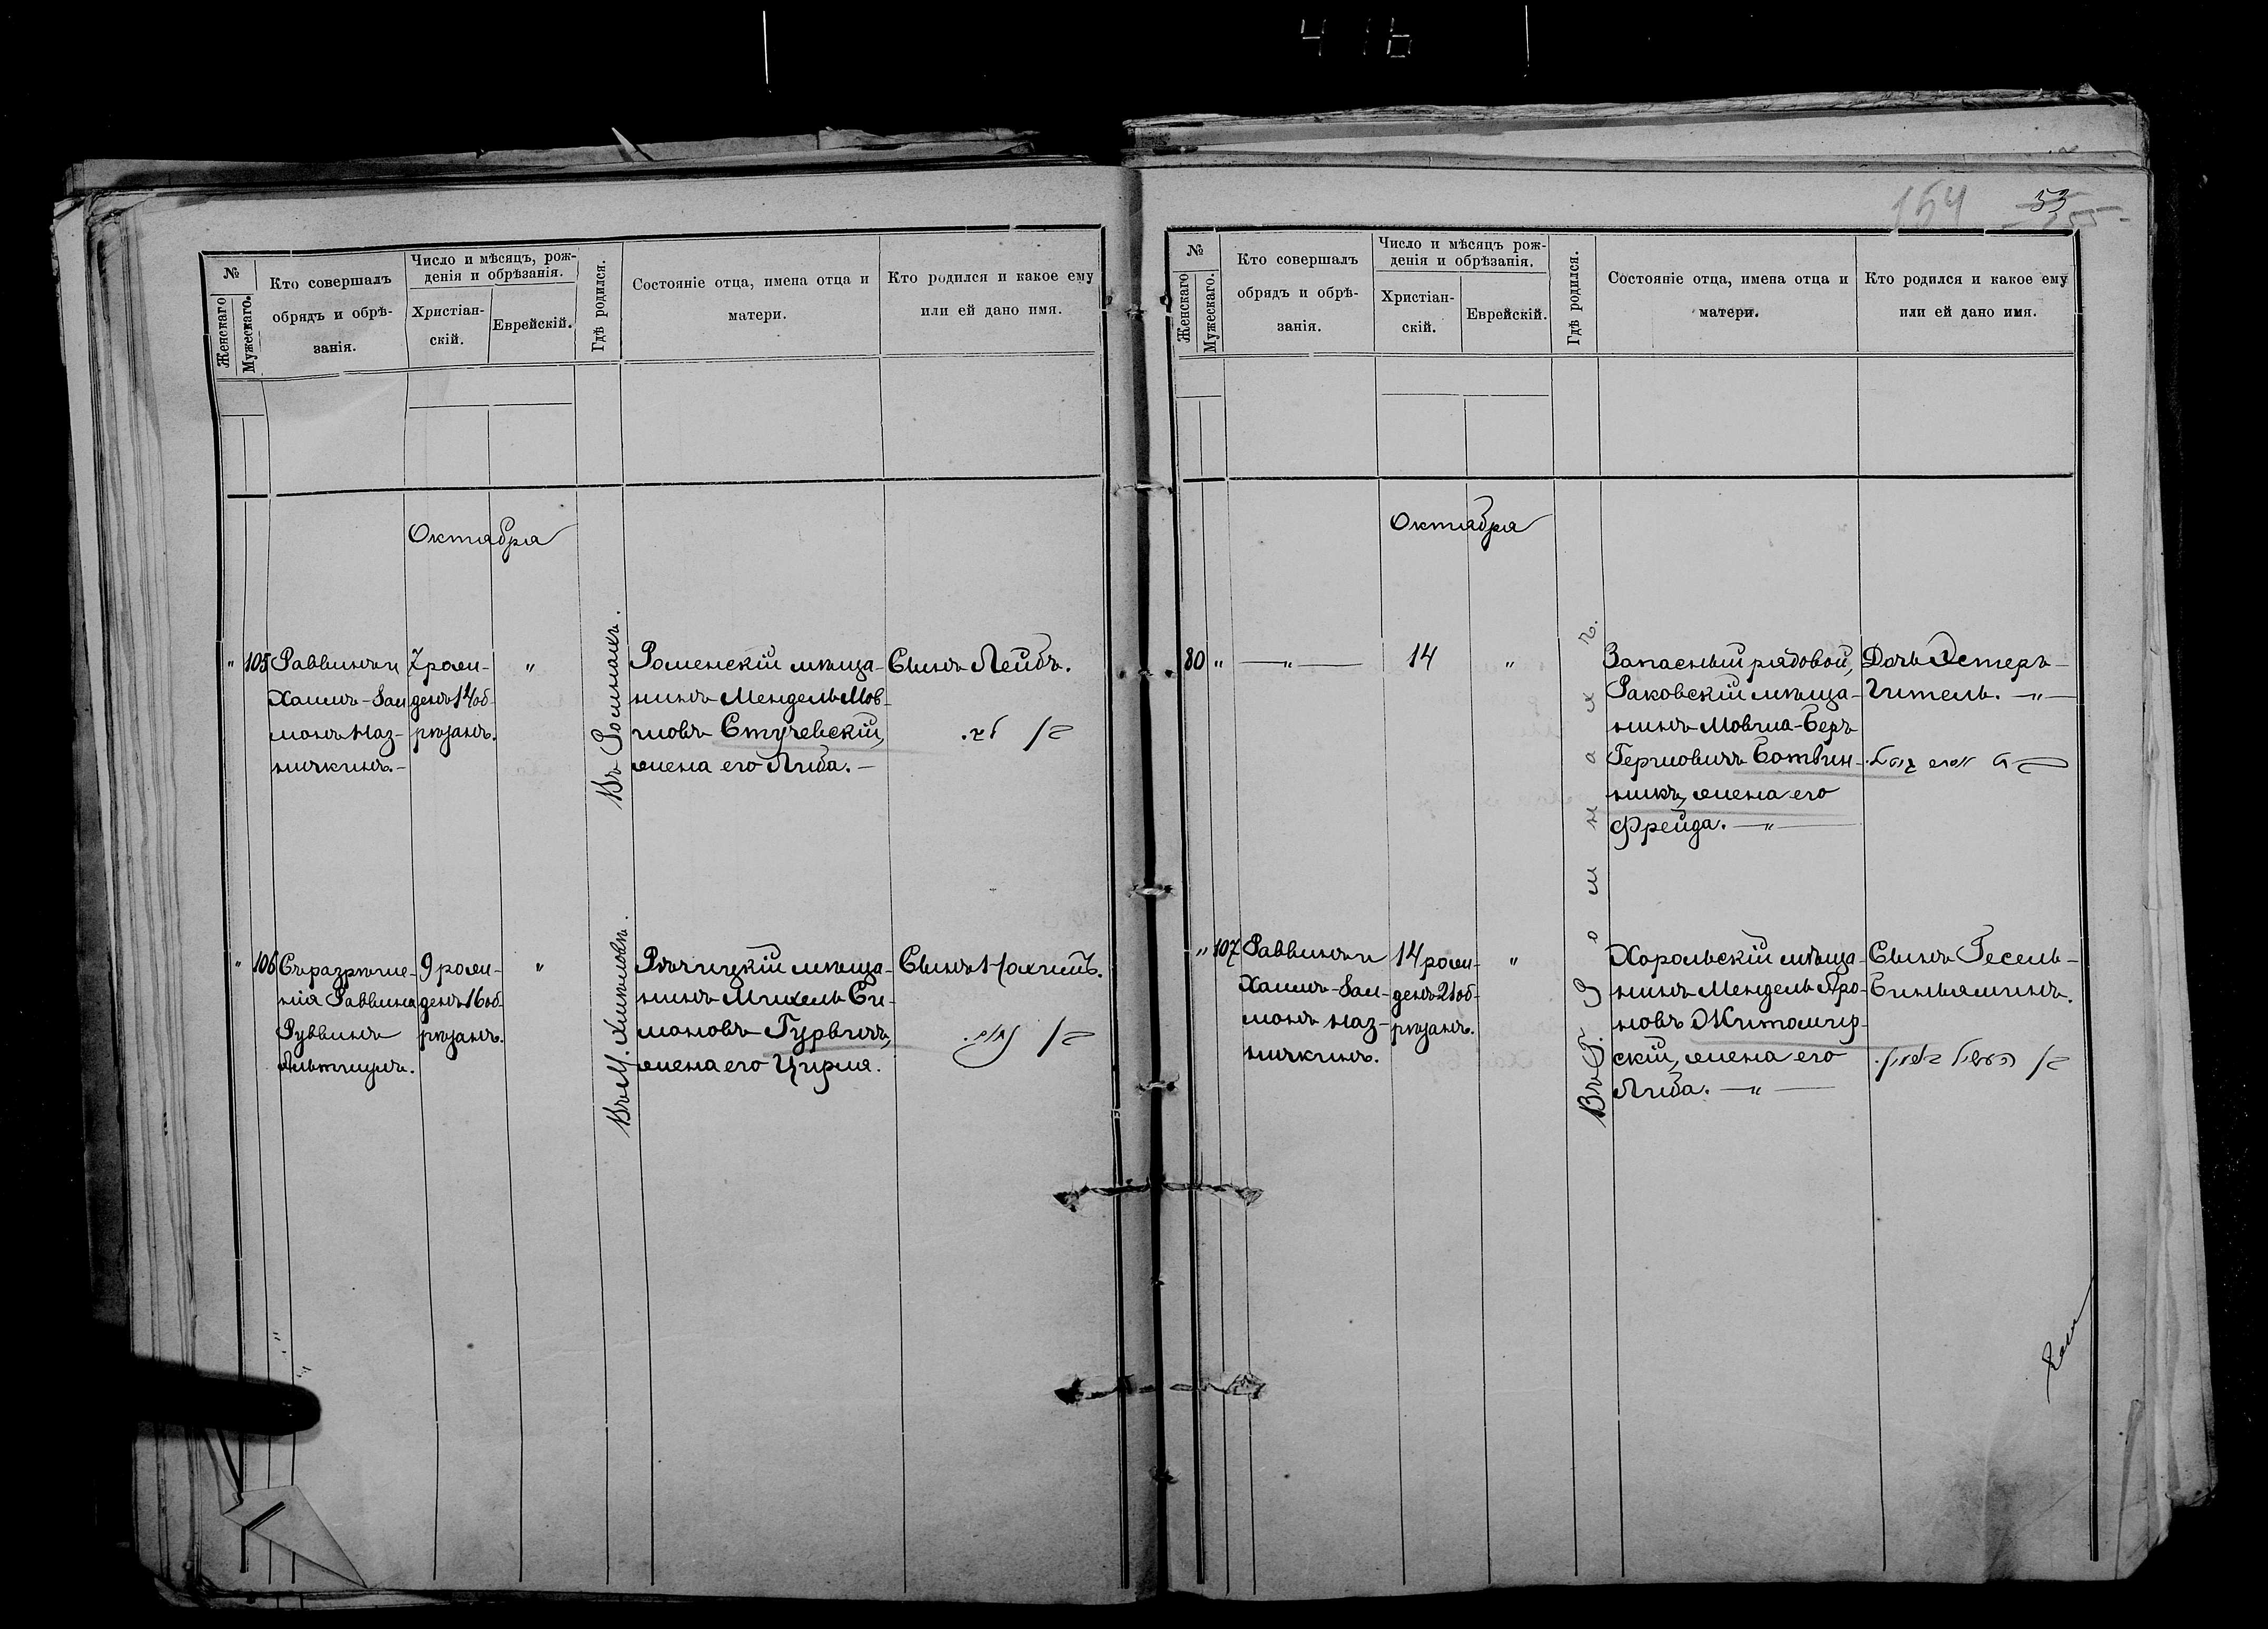 416
№
Женскаго
Мужескаго.
Кто совершалъ
обрядъ и обрѣ-
занія.
Число и мѣсяцъ, рож-
денія и обрѣзанія.
Христіан-
скій.
Еврейскій.
Гдѣ родился.
Состояніе отца, имена отца и
матери.
Кто родился и какое ему
или ей дано имя.
Октября
" 105
Раввинъ и
Хаимъ-Зал
монъ Наз-
ничкинъ.-
7 рож-
денъ 14 об-
рѣзанъ.
"
Въ Ромнахъ.
Роменскій мѣща-
нинъ Мендель Мов-
шовъ Стучевскій,
жена его Либа.-
Сынъ Лейбъ.
בן לייב.
" 106
Съ разрѣше-
нія Раввина
Рувинъ
Альтшулъ.
9 рож-
денъ 16 об-
рѣзанъ.
"
Въ М.
Рѣчицкій мѣща-
нинъ Михель Си-
моновъ Гурвичъ,
жена его Цирля.
Сынъ Нохимъ.
בן נחום.
154
53
155-
№
Женскаго
Мужескаго.
Кто совершалъ
обрядъ и обрѣ-
занія.
Число и мѣсяцъ рож-
денія и обрѣзанія.
Христіан-
скій.
Еврейскій.
Гдѣ родился.
Состояніе отца, имена отца и
матери.
Кто родился и какое ему
или ей дано имя.
Октября
80 "
— " —
14
"
Въ Г. Ромнахъ.
Запасный рядовой,
Раковскій мѣща-
нинъ Мовша-Беръ
Гершовичъ Ботвин-
никъ, жена его
Фрейда. — " —
Дочь Эстеръ-
Гитель. — " —
בת אסתר גיטל.
" 107
Раввинъ и
Хаимъ-Зал-
монъ Наз-
ничкинъ.
14 рож-
денъ 21 об-
рѣзанъ.
"
Хорольскій мѣща-
нинъ Мендель Аро-
новъ Житомир-
скій, жена его
Либа. — " —
Сынъ Гесель-
Биньяминъ.